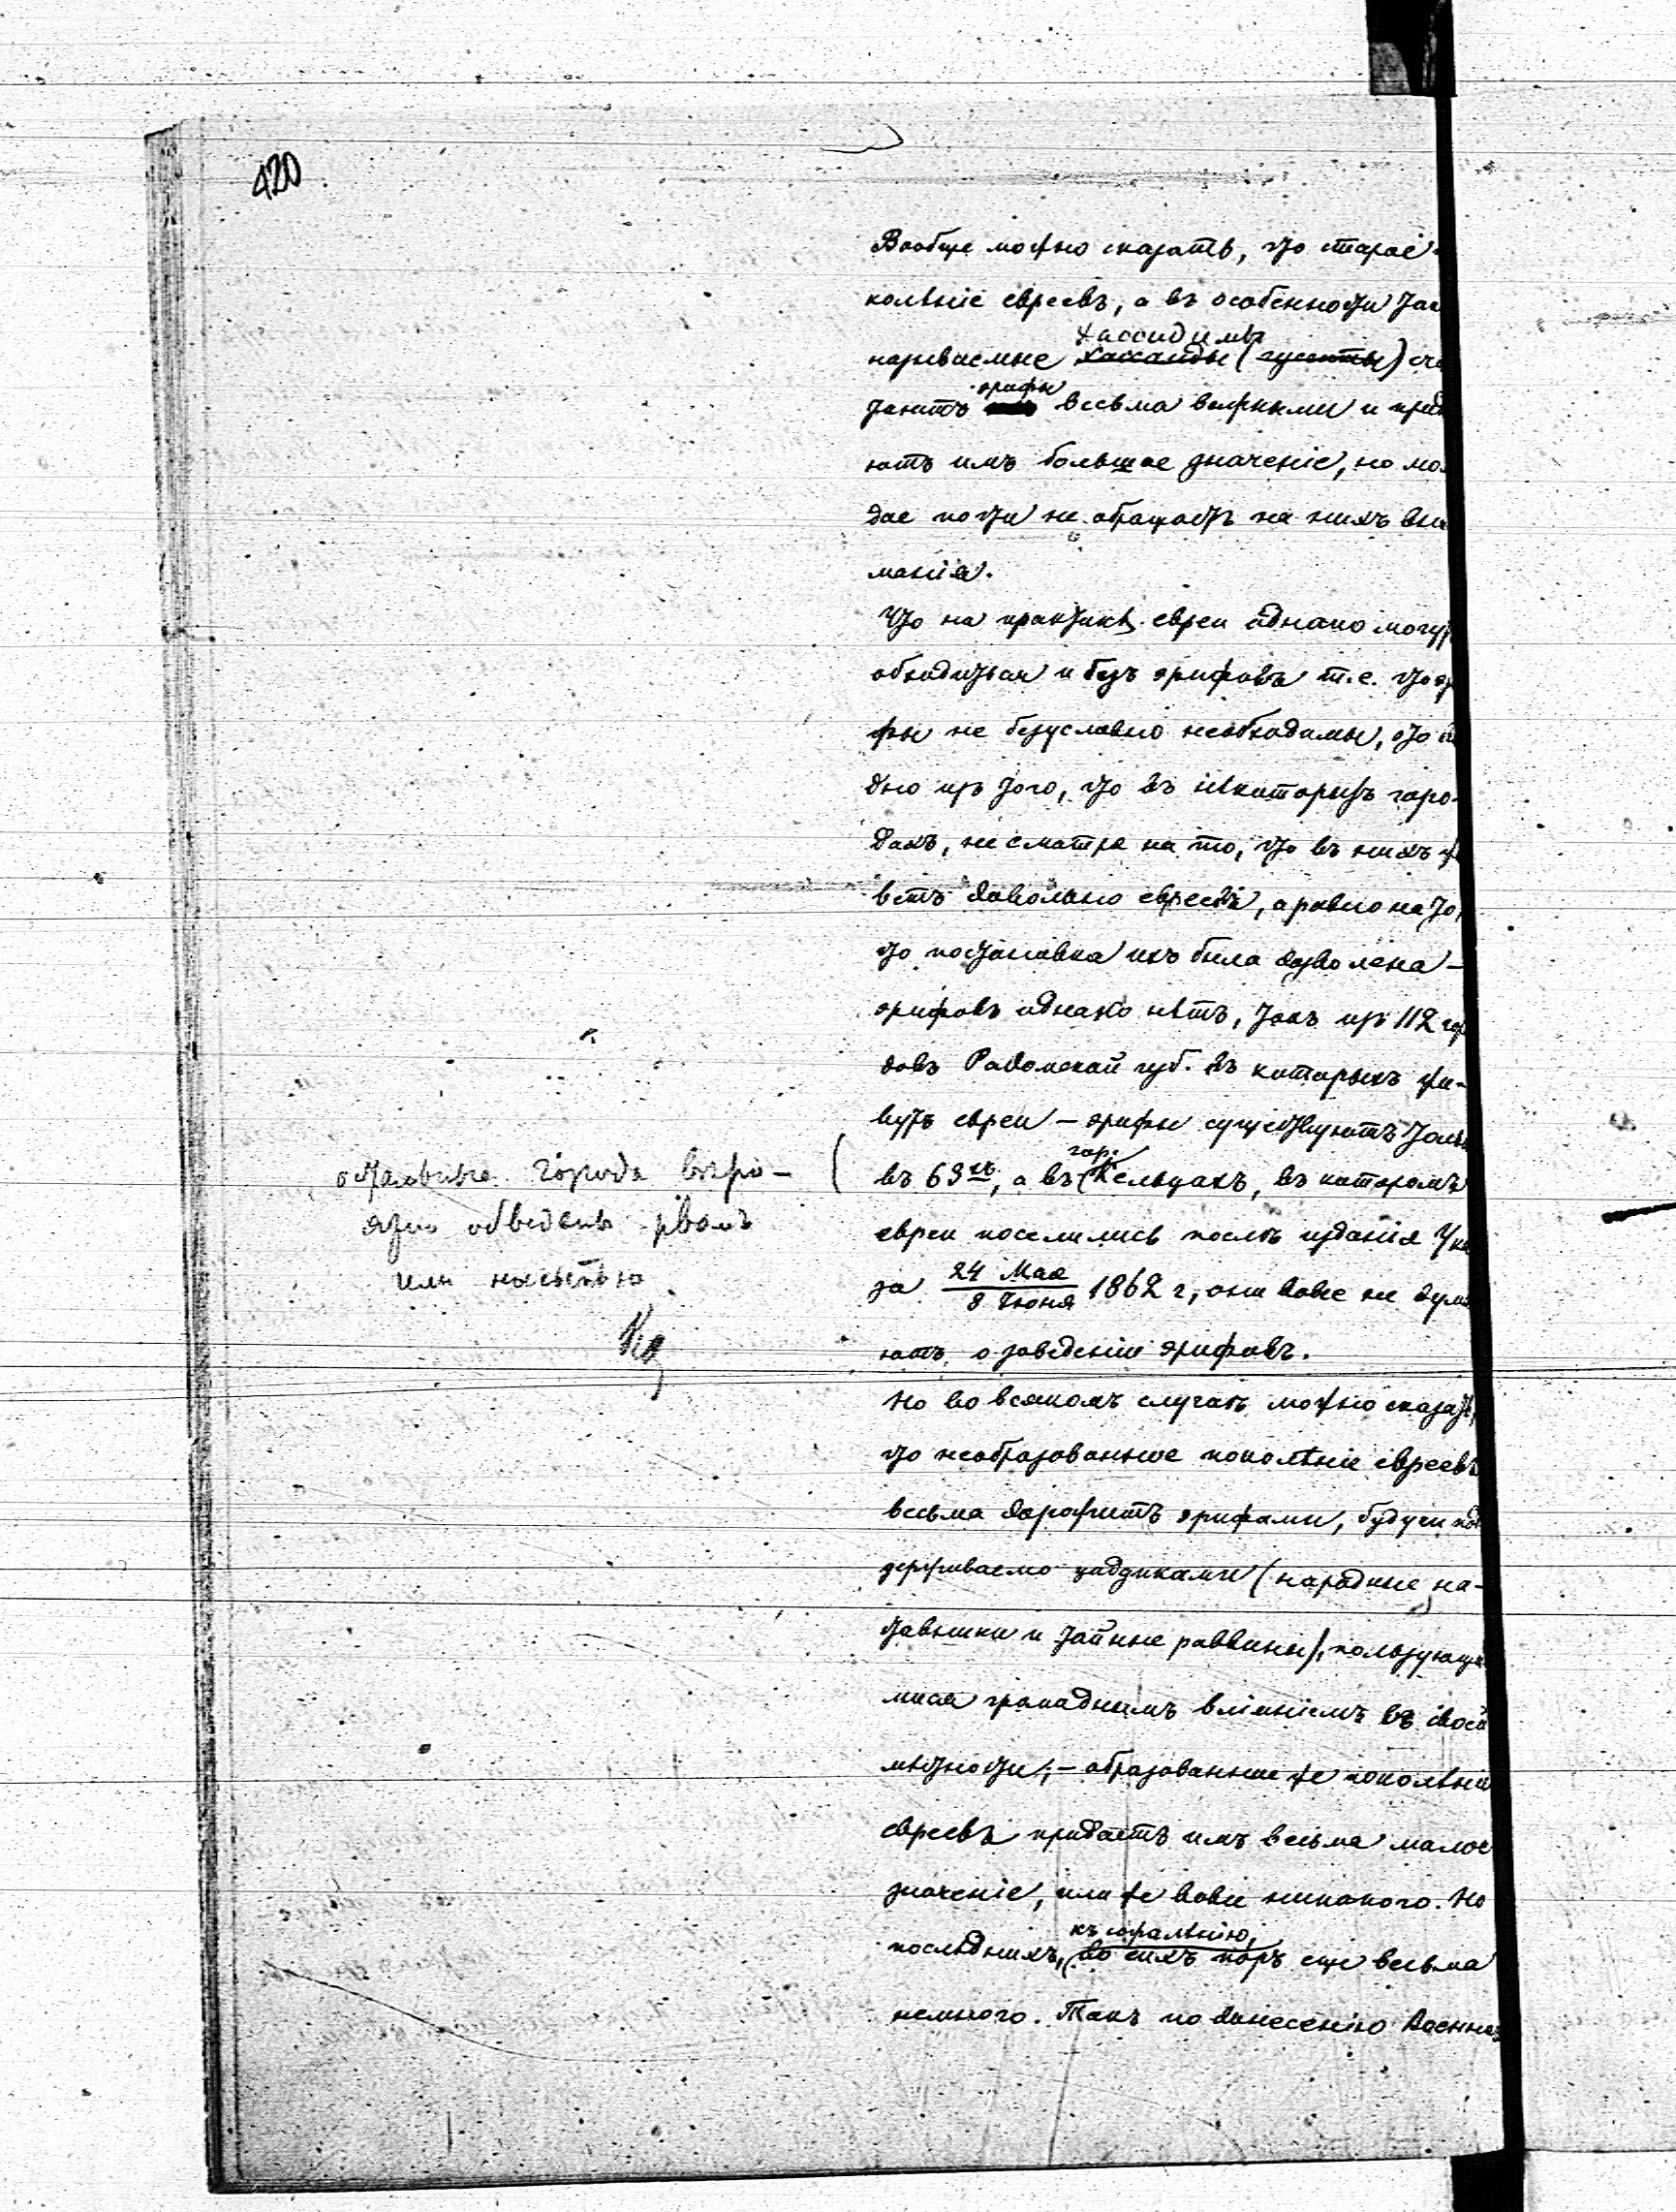 420
Вообще можно сказать, что старое
колѣніе евреевъ, а въ особенности так
хассидимъ
называемые хассиды (гусситы) счи
эрифы
таютъ весьма важными и прида
ютъ имъ большое значеніе, но моло
дое почти не обращаетъ на нихъ вни
манія.
Что на практикѣ евреи однако могутъ
обходиться и безъ эрифовъ т.е. что эри
фы не безусловно необходимы, это ви
дно изъ того, что въ нѣкоторыхъ горо-
дахъ, не смотря на то, что въ нихъ жи
ветъ довольно евреевъ, а равно на то,
что постановка ихъ была дозволена –
эрифовъ однако нѣтъ, такъ изъ 112 горо
довъ Радомской губ. въ которыхъ жи-
вутъ евреи – эрифы существуютъ только
гор.
въ 63хъ, а въ Кельцахъ, въ которомъ
евреи поселились послѣ изданія Ука
за 24 Мая / 8 Іюня 1862 г, они вовсе не дума
ютъ о заведеніи эрифовъ.
остальные города вѣро-
ятно обведены рвомъ
или насыпью
Но во всякомъ случаѣ можно сказать,
что необразованное поколѣніе евреевъ
весьма дорожитъ эрифами, будучи под
держиваемо цаддиками (народные на-
ставники и тайные раввины), пользующи
мися громаднымъ вліяніемъ въ своей
мѣстности; – образованное же поколѣніе
евреевъ придаетъ имъ весьма малое
значеніе, или же вовсе никакого. Но
къ сожалѣнію,
послѣднихъ, до сихъ поръ еще весьма
немного. Такъ по донесенію Военнаго